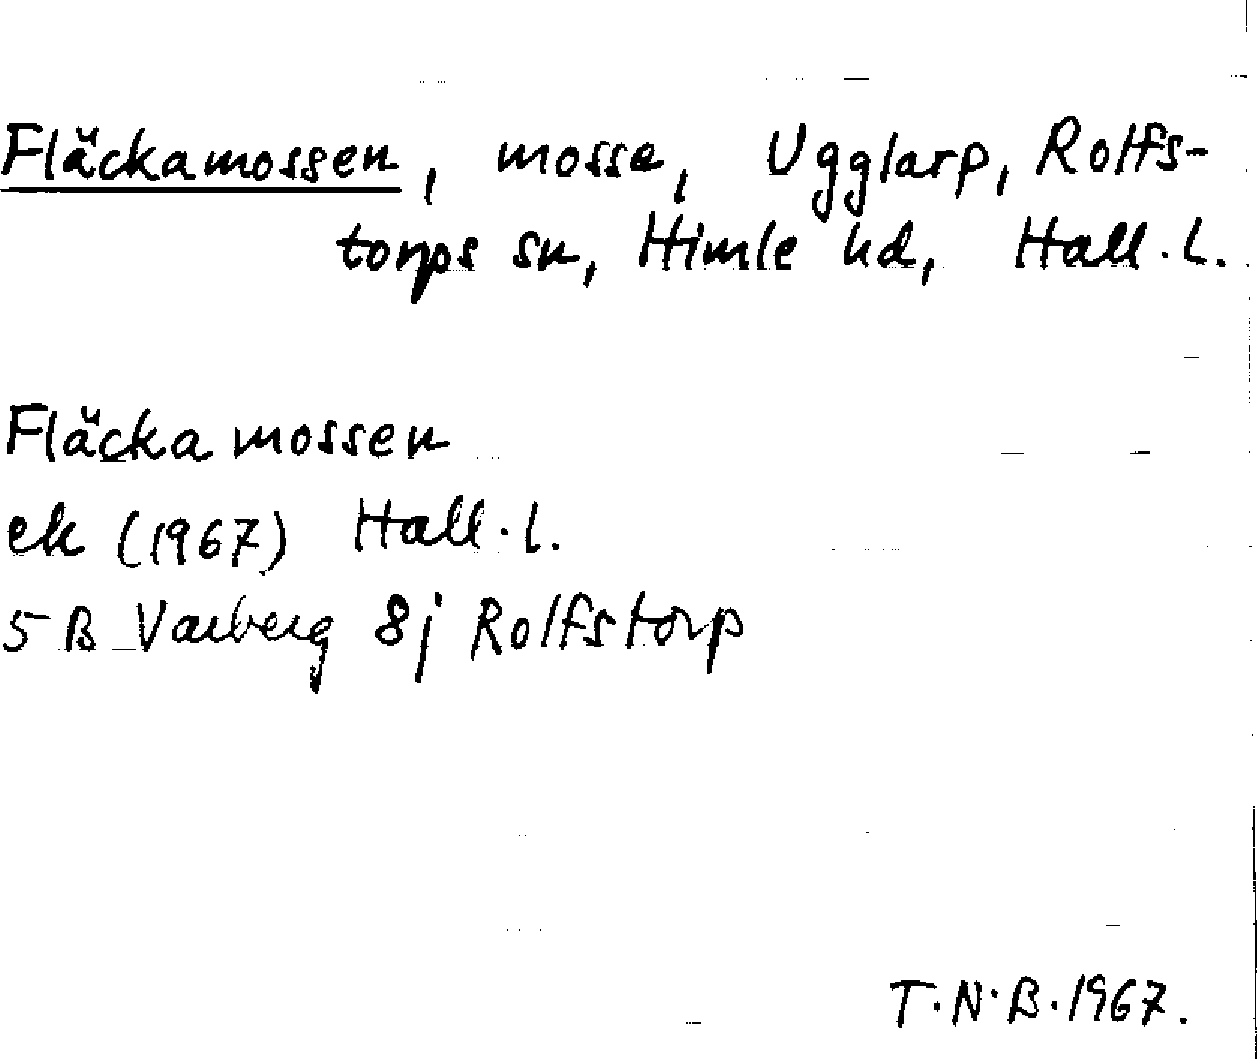 Fläckamossen, mosse, Ugglarp, Rolfs-
torps sn, Himle hd, Hall. l.
Fläckamossen
ek (1967) Hall. l.
5 B Varberg 8j Rolfstorp
T.N.B. 1967.